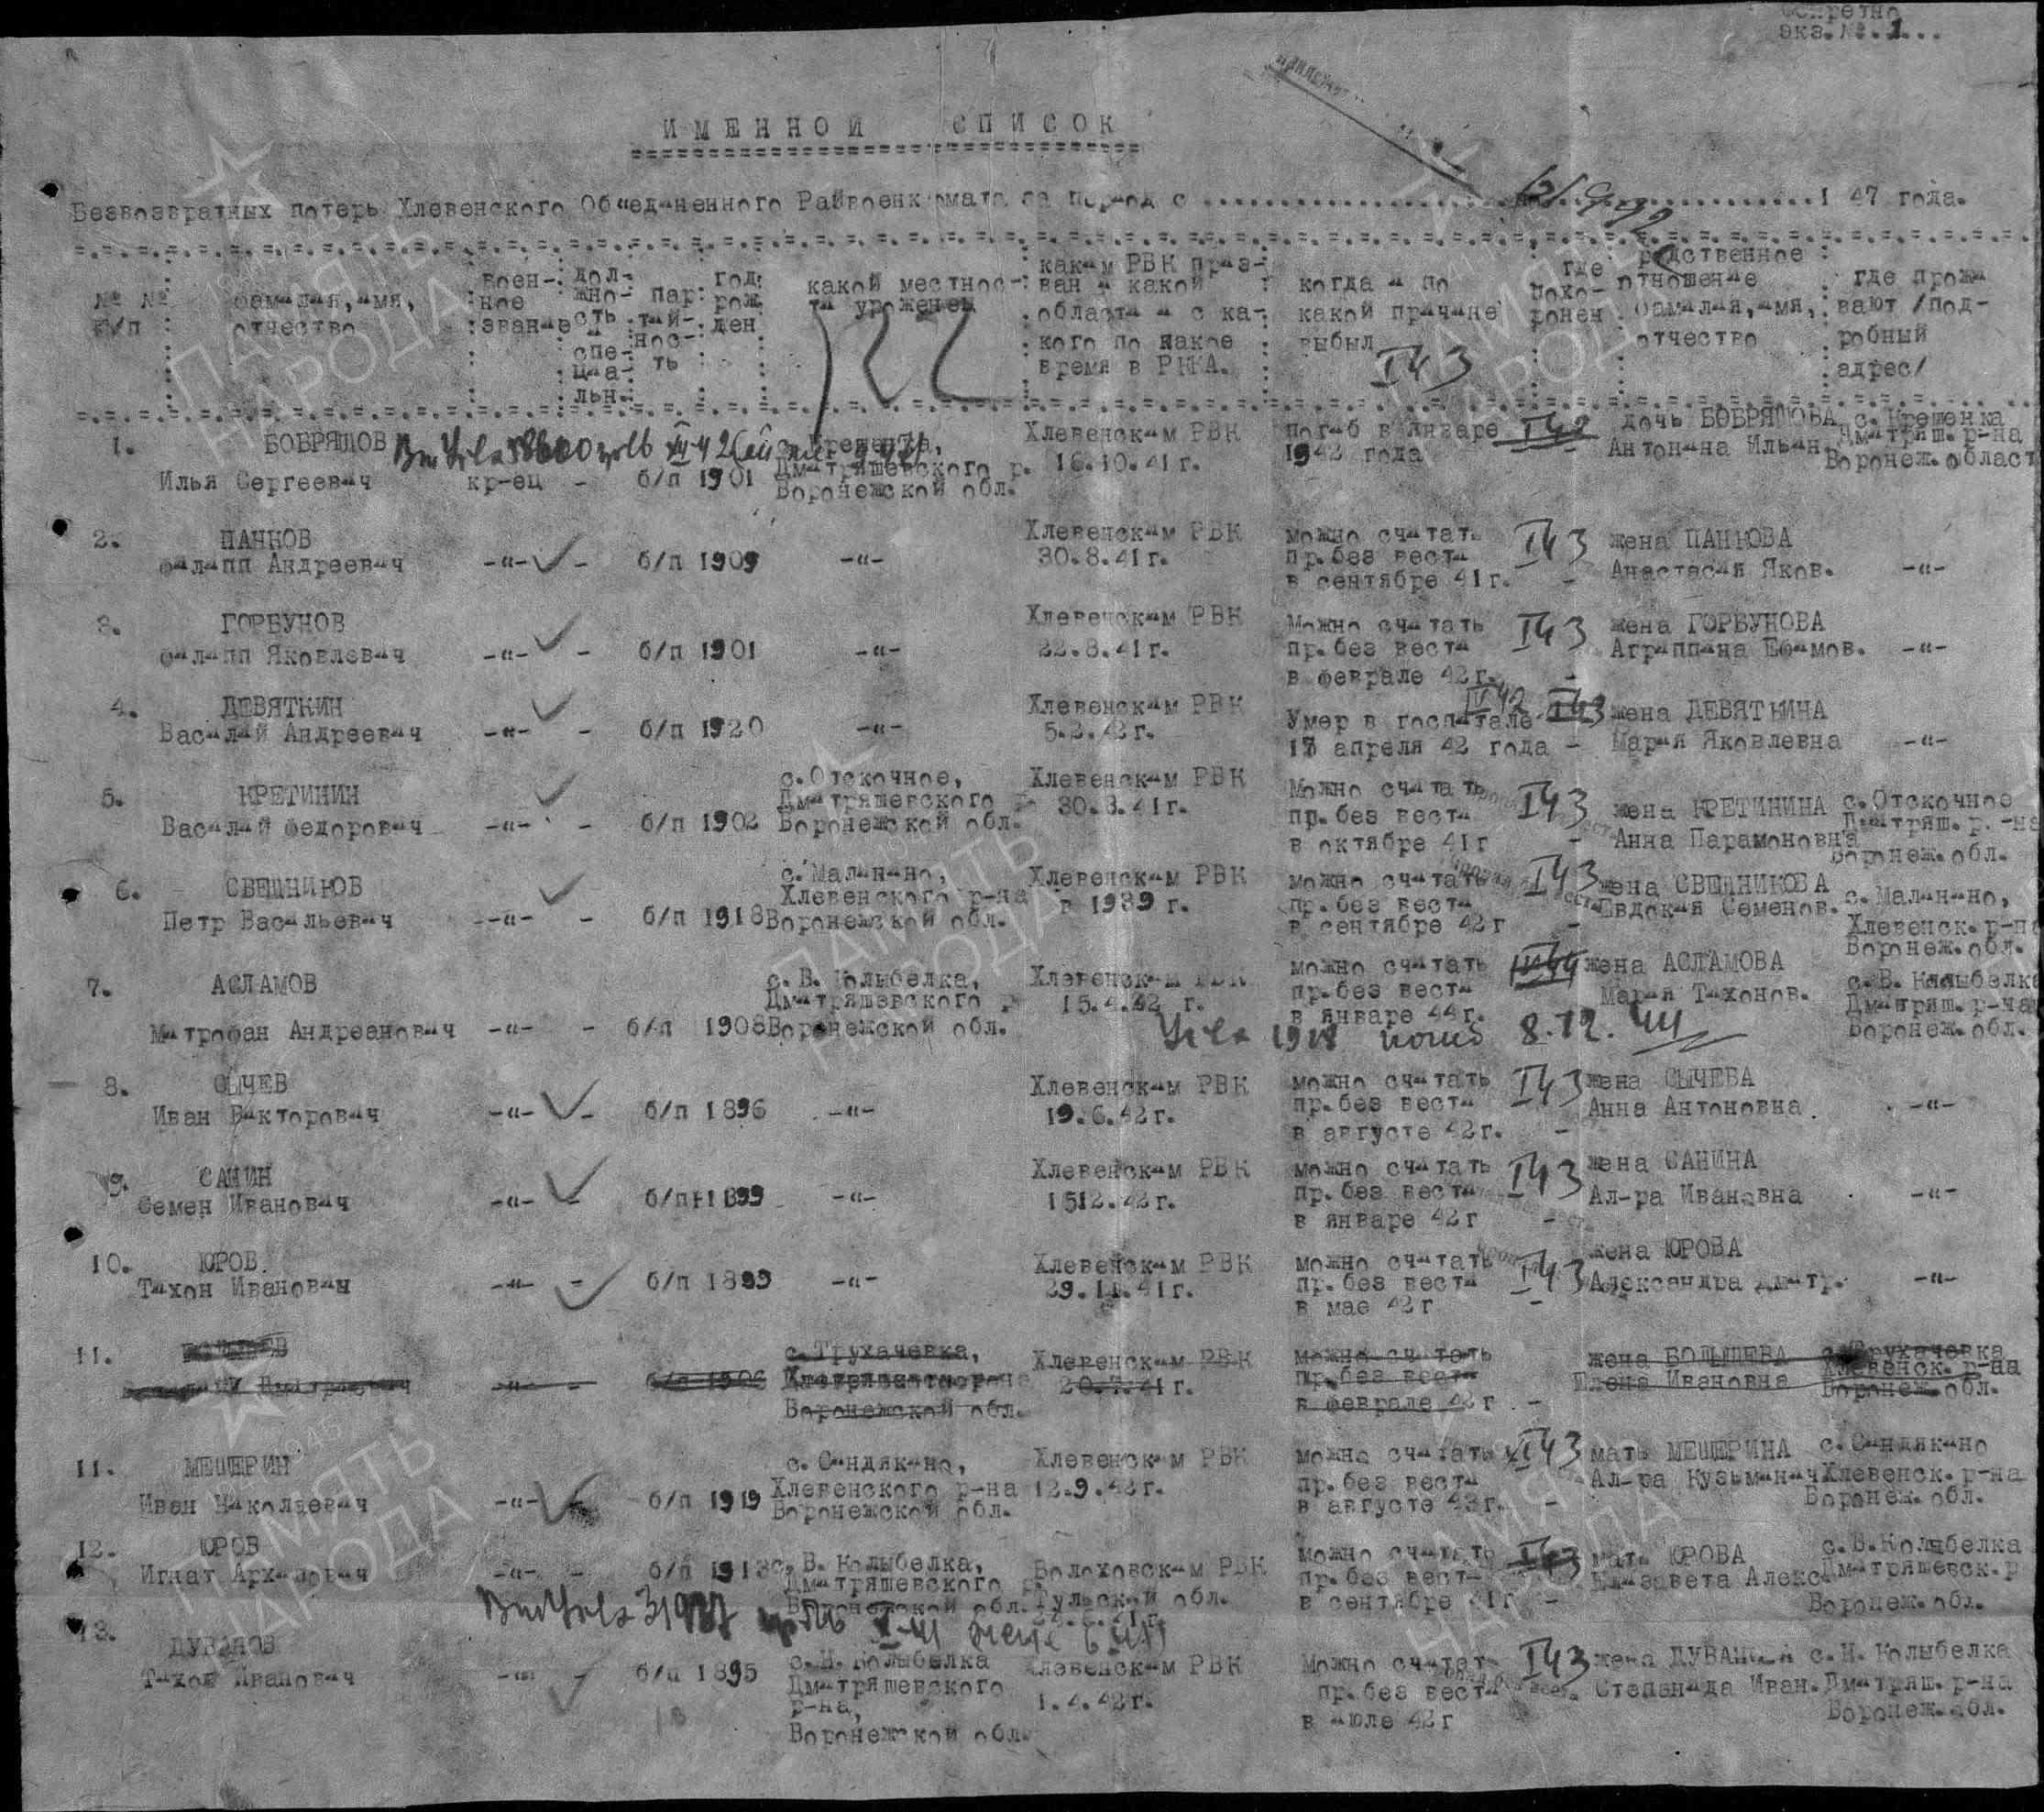 Секретно
экз.№.1...
ИМЕННОЙ СПИСОК
Безвозвратных потерь Хлевенского Объединенного Райвоенкомата за период с ... 1 47 года.
№ № п/п
фамилия, имя, отчество
воен-ное звание
дол-жно-сть и спе-циа-льн.
пар-тий-нос-ть
год рож ден
какой местнос-ти уроженец
каким РВК приз-ван и какой области и с ка-кого по какое время в РККА.
когда и по какой причине выбыл
где похо-ронен
родственное отношение фамилия, имя, отчество
где прожи вают /под-робный адрес/
I 43
1. БОБРЯШОВ Хлевенским РВК погиб в январе I 42 дочь БОБРЯШОВА с. Крещенка
Илья Сергеевич кр-ец - б/п 1901 Дмитряшевского р. Воронежской обл. 16.10.41г. 1942 года Антонина Ильин. Дмитряш. р-на Воронеж. област
2. ПАНКОВ Хлевенским РВК можно считать I 43 жена ПАНКОВА
Филипп Андреевич -"- - б/п 1909 -"- 30.8.41г. пр.без вести Анастасия Яков. -"-
в сентябре 41г. -
3. ГОРБУНОВ Хлевенским РВК Можно считать I 43 жена ГОРБУНОВА
Филипп Яковлевич -"- - б/п 1901 -"- 22.8.41г. пр.без вести Агриппина Ефимов. -"-
в феврале 42г. -
4. ДЕВЯТКИН Хлевенским РВК Умер в госпитале жена ДЕВЯТКИНА
Василий Андреевич -"- - б/п 1920 -"- 5.2.42г. апреля 42 года - Мария Яковлевна -"-
5. КРЕТИНИН с.Отскочное, Хлевенским РВК Можно считать I 43 жена КРЕТИНИНА с.Отскочное
Василий Федорович -"- - б/п 1902 Дмитряшевского р Воронежской обл. 30.8.41г. пр.без вести Анна Парамоновна Дмитряш.р.-на
в октябре 41г - Воронеж.обл.
6. СВЕШНИКОВ с.Малинино, Хлевенским РВК можно считать I 43 жена СВЕШНИКОВА с.Малинино,
Петр Васильевич -"- - б/п 1918 Хлевенского р-на Воронежской обл. в 1939 г. пр.без вести Евдокия Семенов. Хлевенск.р-на
в сентябре 42г - Воронеж.обл.
7. АСЛАМОВ с.В. Колыбелка, Хлевенским РВК можно считать жена АСЛАМОВА с.В. Колыбелка
Митрофан Андреанович -"- - б/п 1908 Дмитряшевского р Воронежской обл. 15.4.42 г. пр.без вести Мария Тихонов. Дмитряш.р-на
в январе 44г. Воронеж.обл.
8.12.44
8. СЫЧЕВ Хлевенским РВК можно считать I 43 жена СЫЧЕВА
Иван Викторович -"- - б/п 1896 -"- 19.6.42г. пр.без вести Анна Антоновна -"-
в августе 42г. -
9. САНИН Хлевенским РВК можно считать I 43 жена САНИНА
Семен Иванович -"- - б/п 1899 -"- 1512.42г. пр.без вести Ал-ра Ивановна -"-
в январе 42г -
10. ЮРОВ Хлевенским РВК можно считать I 43 жена ЮРОВА
Тихон Иванович -"- - б/п 1899 -"- 29.11.41г. пр.без вести Александра Дмитр. -"-
в мае 42г -
11. с.Трухачевка, Хлевенским РВК можно считать жена БОЛЫШЕВА с.Трухачевка
-"- - б/п 1906 Воронежской обл. 20.7.41г. пр.без вести Елена Ивановна Хлевенск.р-на
в феврале 42г - Воронеж.обл.
11. МЕЩЕРИН с.Синдякино, Хлевенским РВК можно считать I 43 мать МЕЩЕРИНА с.Синдякино
Иван Николаевич -"- б/п 1919 Хлевенского р-на Воронежской обл. 12.9.42г. пр.без вести Ал-ра Кузьминич Хлевенск.р-на
в августе 43г. - Воронеж.обл.
12. ЮРОВ с.В. Колыбелка, Волоховским РВК можно считать мать ЮРОВА с.В.Колыбелка
Игнат Архипович -"- - б/п 1918 Дмитряшевского р Воронежской обл. Тульской обл. пр.без вести Елизавета Алекс. Дмитряшевск.р
в сентябре 41г - Воронеж.обл.
13. ДУВАНОВ с.Н. Колыбелка Хлевенским РВК Можно считать I 43 жена ДУВАНОВА с.Н. Колыбелка
Тихон Иванович -"- - б/п 1895 Дмитряшевского р-на, 1.4.42г. пр.без вести Степанида Иван. Дмитряш. р-на
Воронежской обл. в июле 42г Воронеж.обл.
ПАМЯТЬ НАРОДА